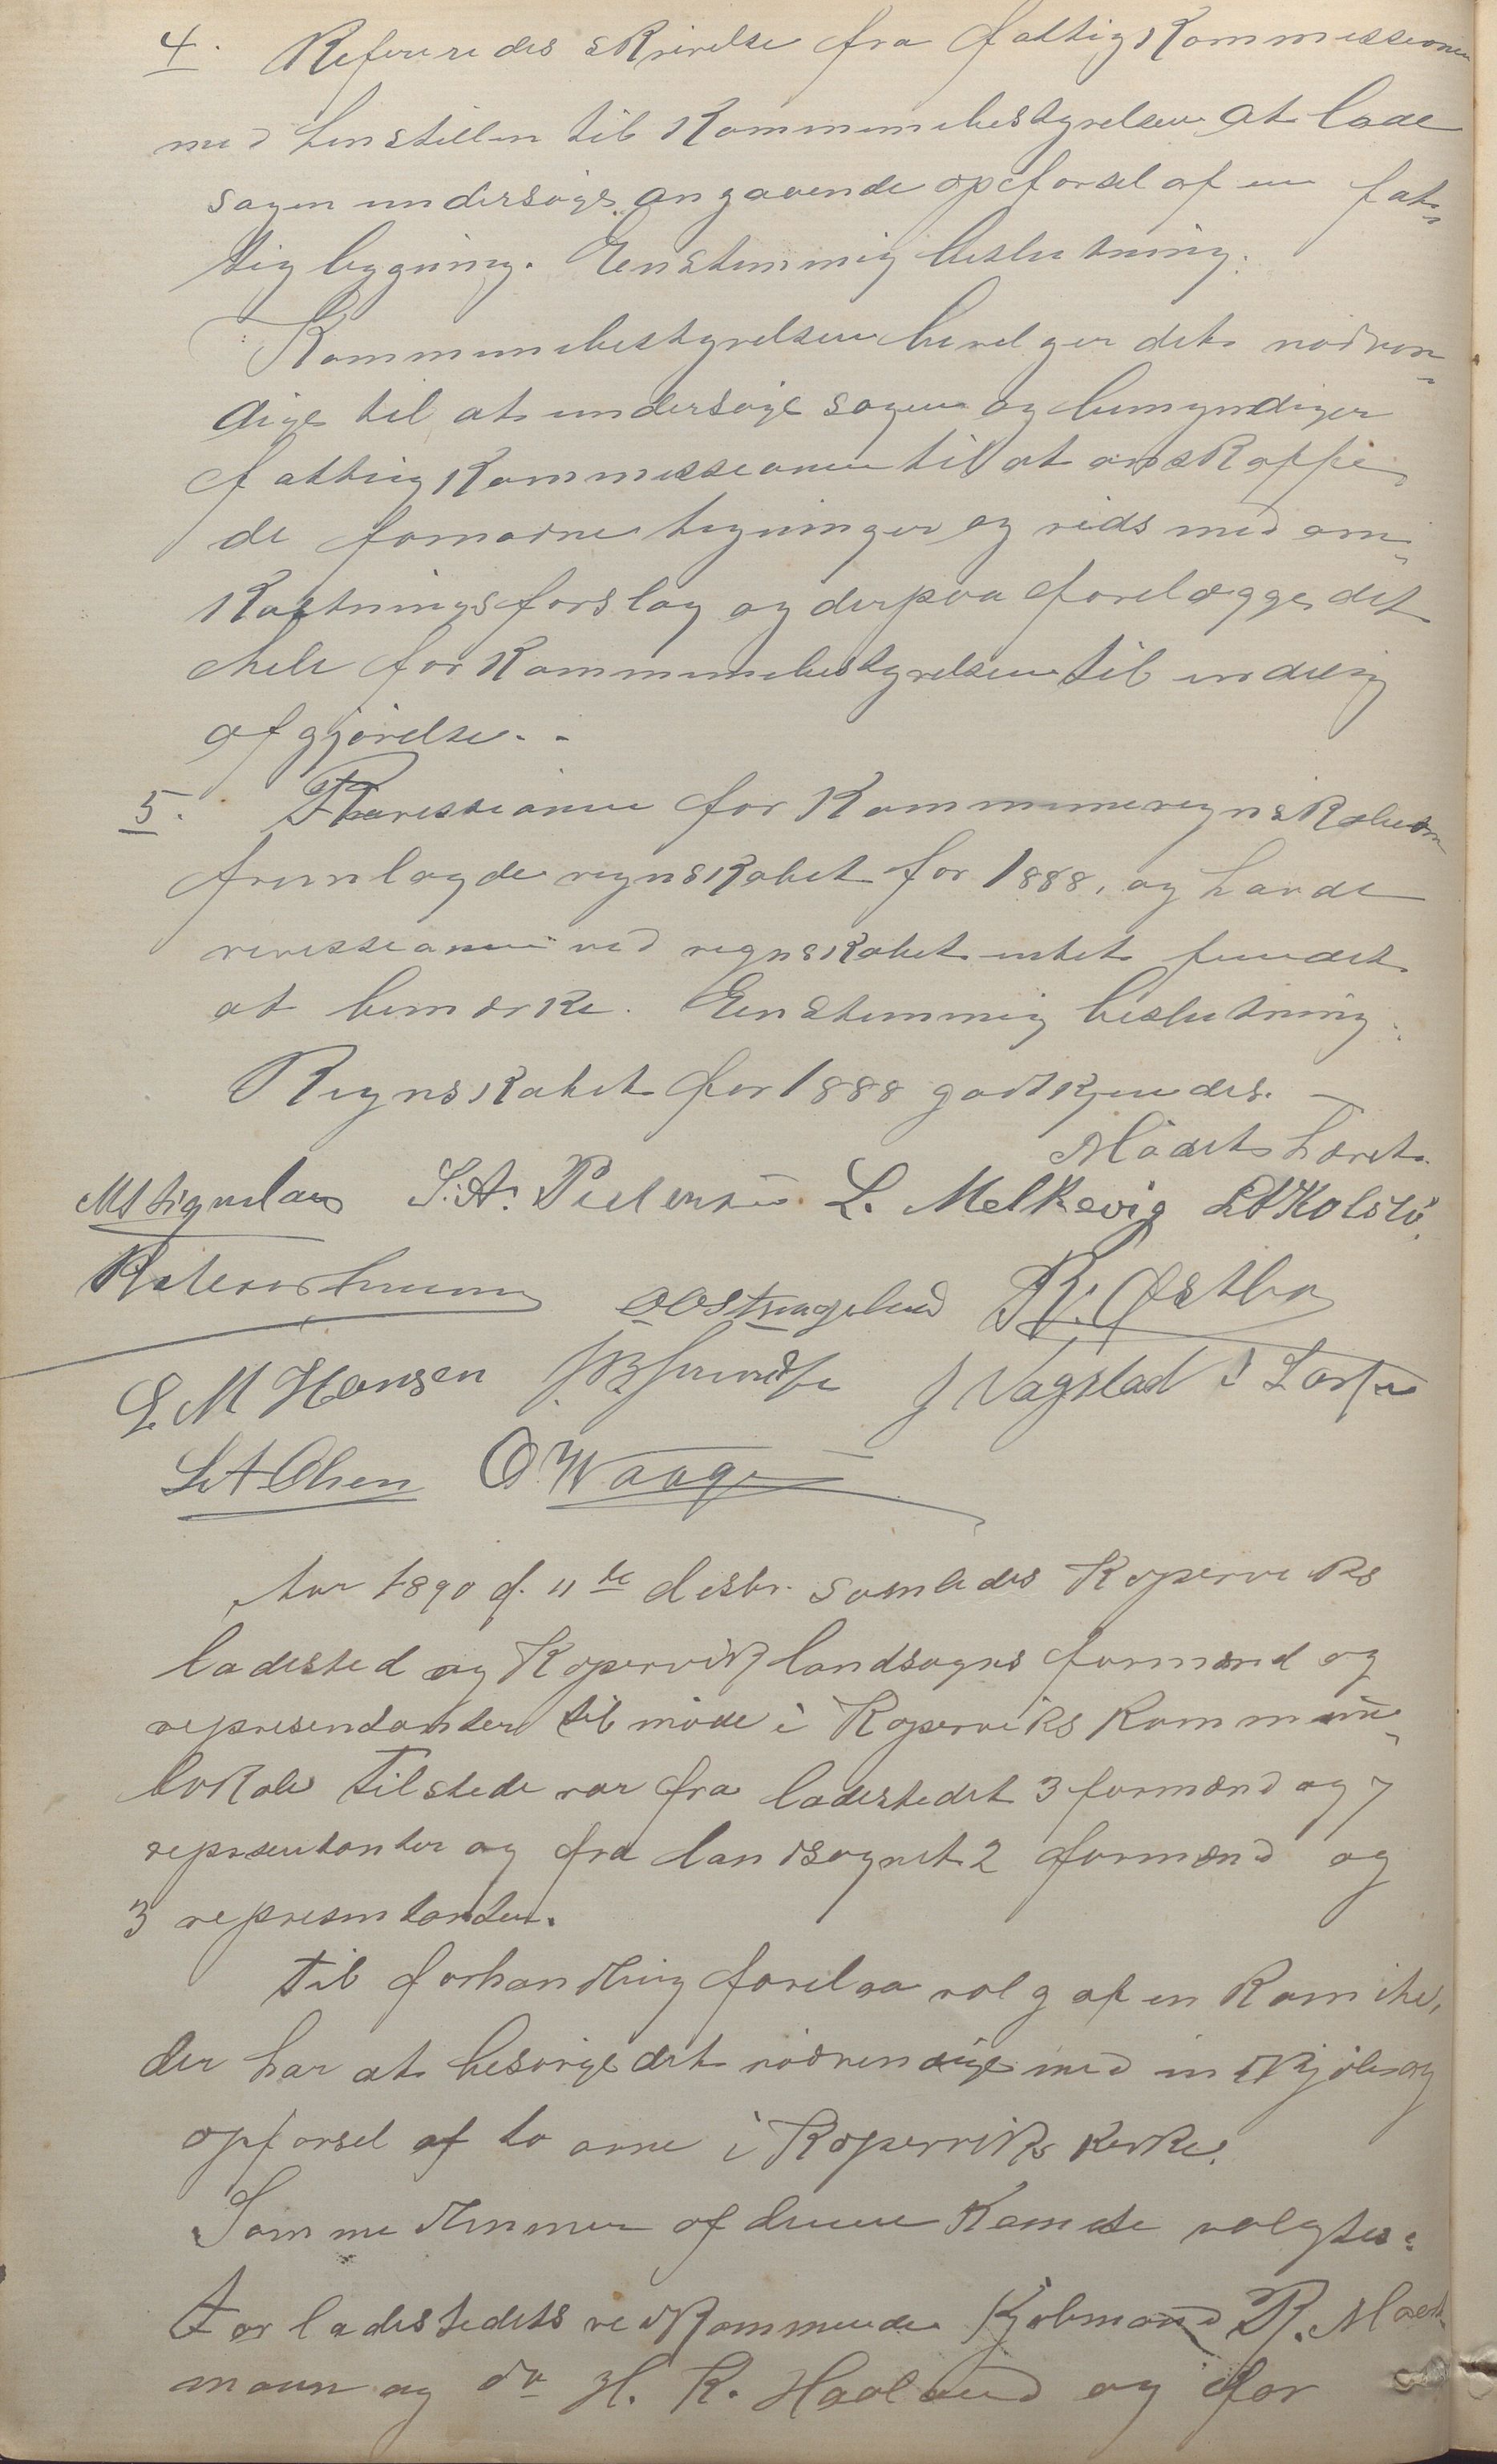 4. Refereredes skrivelse fra fattigkommissionen
med henstillen til Kommunebestyrelsen at lade
sagen undersøge angaaende opførsel af en fat-
tigbygning. Eenstemmig beslutning:
Kommunebestyrelsen bevelger det nødven-
dige til at undersøge sagen og bemyndiger
fattigkommissionen til at anskaffe
de fornødne tegninger og rids med om-
kostningsforslag og derpaa forelægge det
hele for Kommunebestyrelsen til endelig
afgjørelse. -
5. Revissionen for Kommuneregnskaberne
fremlagde regnskabet for 1888, og havde
revissionen ved regnskabet intet fundet
at bemærke. Eenstemmig beslutning:
Regnskabet for 1888 godkjendes. —
Mødet hævet.
S. A. Pedersen L. Melkevig Kolstø
R. Østbø
L. M Hansen J Vagstad
L A Olsen O. Waage
Aar 1890 d. 11te desbr. samledes Koperviks
ladested og Kopervik landsogns formænd og
representanter til møde i Koperviks kommune-
lokale Tilstede var fra ladestedet 3 formænd og 7
representanter og fra landsognet 2 formænd og
3 representanter.
Til forhandling forelaa valg af en Komite,
der har at besørge det nødvendige med indkjøb og
opførsel af to ovne i Koperviks kirke.
Som medlemmer af denne Komite valgtes:
For ladestedets vedkommende Kjøbmand R.
mann og do H. K. Haaland og for